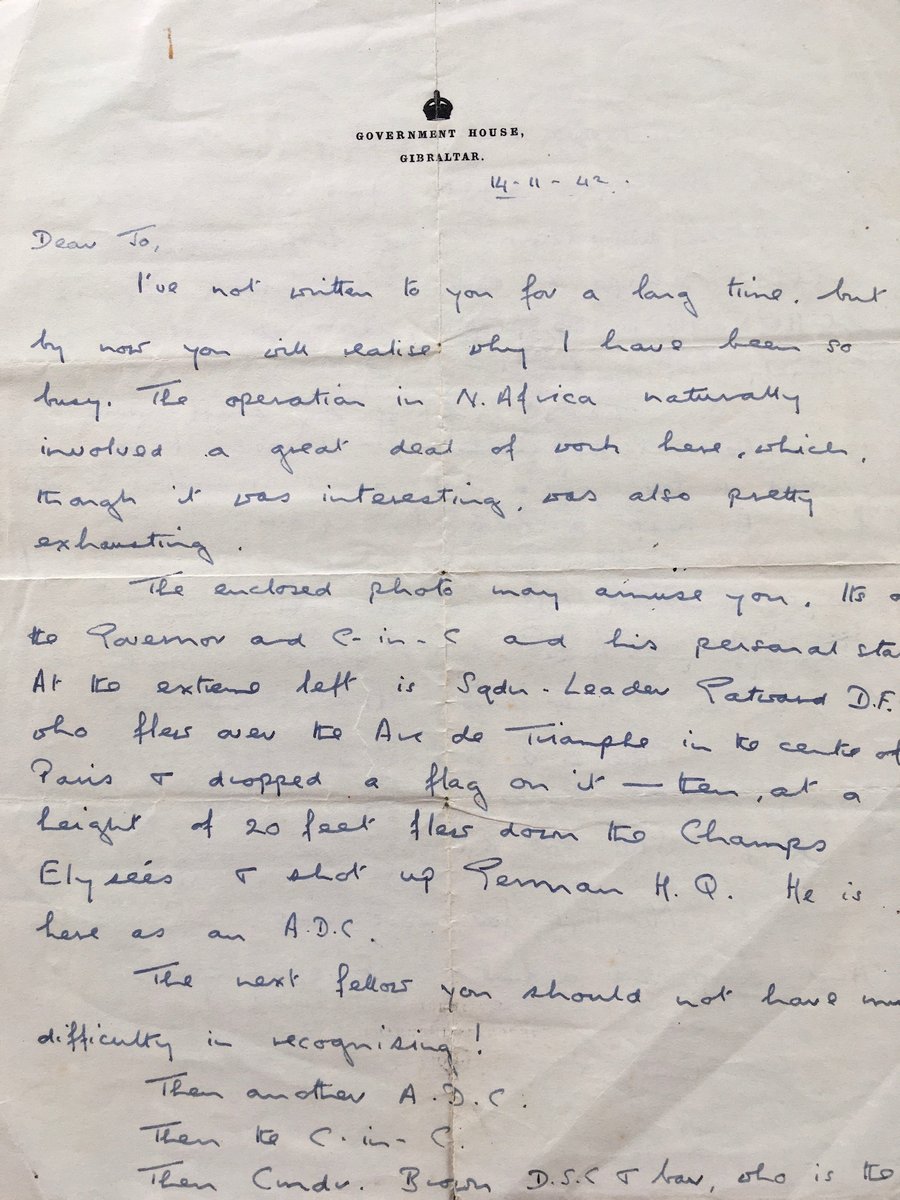 GOVERNMENT HOUSE,
GIBRALTAR.
14-11-42.
Dear Jo,
I've not written to you for a long time. but
by now you will realise why I have been so
busy. The operation in N. Africa naturally
involved a great deal of work here, which,
though it was interesting, was also pretty
exhausting.
The enclosed photo may amuse you. Its
the Governor and C-in-C and his personal
At the extreme left is Sqdn-Leader Gatward D.F.
who flew over the Arc de Triomphe in the centre of
Paris & dropped a flag on it — then, at a
height of 20 feet flew down the Champs
Elysées & shot up German H.Q. He is
here as an A.D.C.
The next fellow you should not have
difficulty in recognising!
Then another A.D.C.
Then the C-in-C.
Then Cmdr. Brown D.S.C & bar, who is the